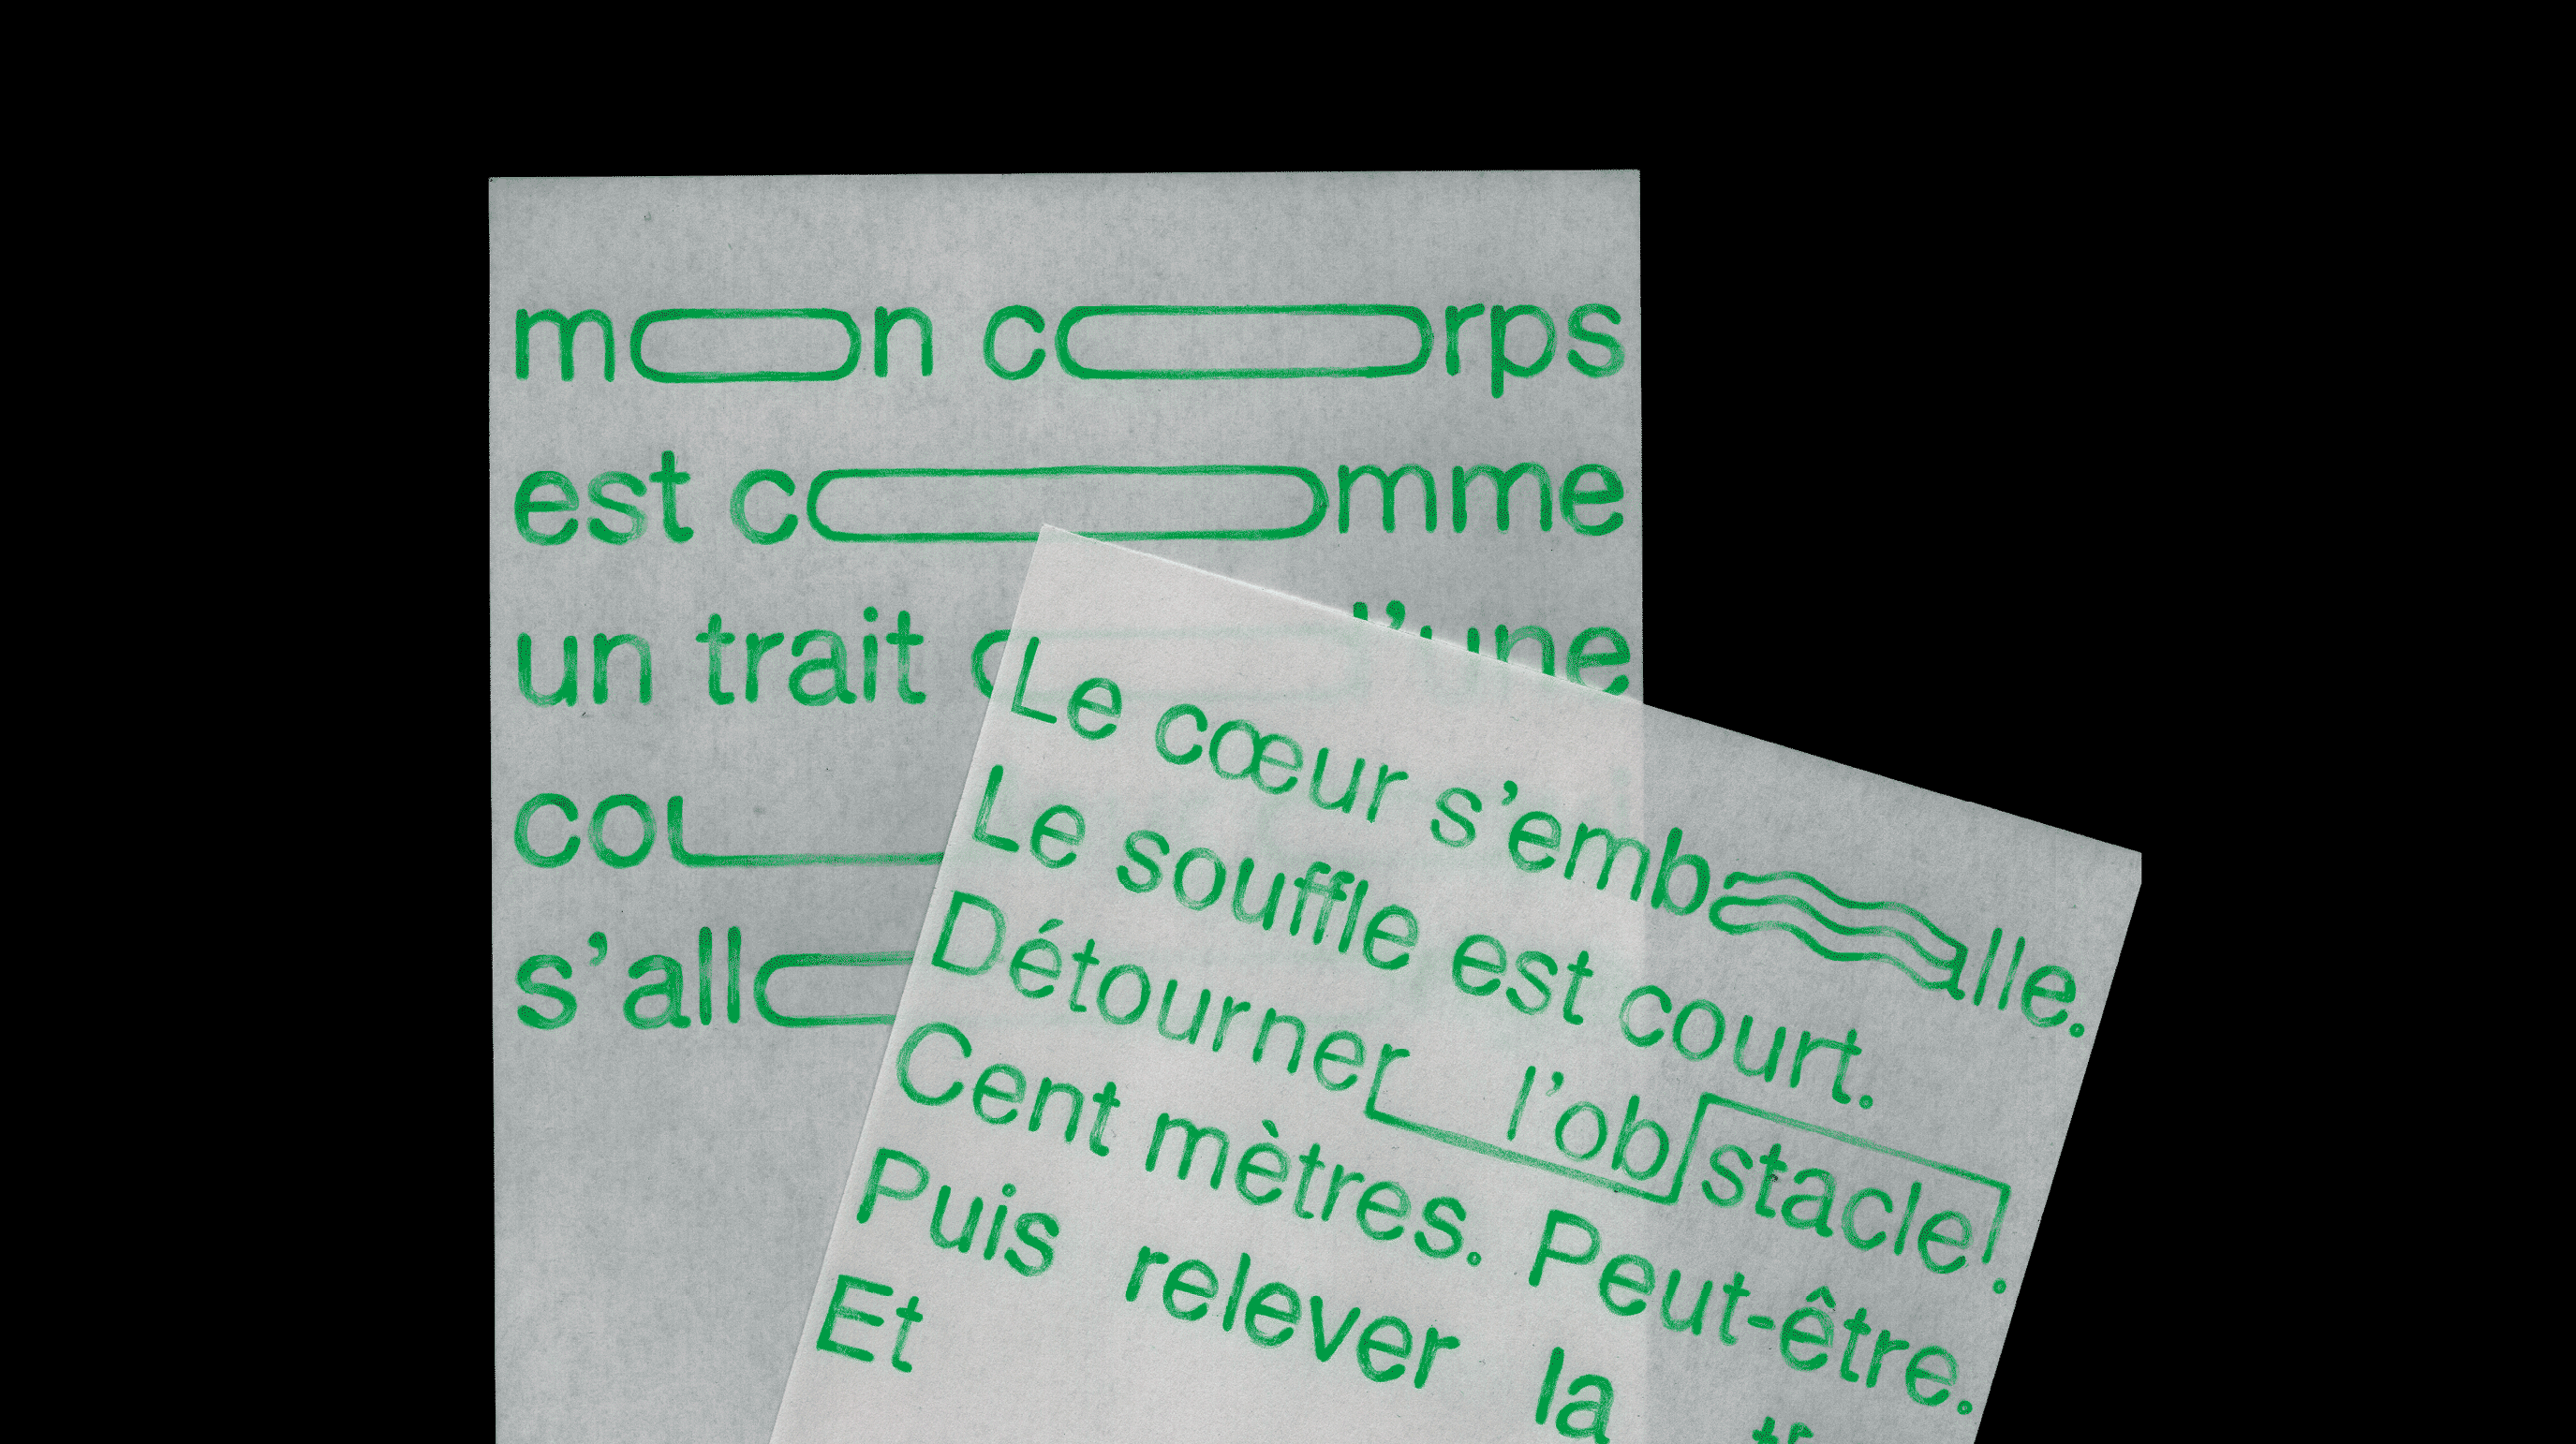 mon corps
est comme
un trait d'une
cou
s'allo
Le cœur s'emballe.
Le souffle est court.
Détourner l'obstacle.
Cent mètres. Peut-être.
Puis relever la
Et